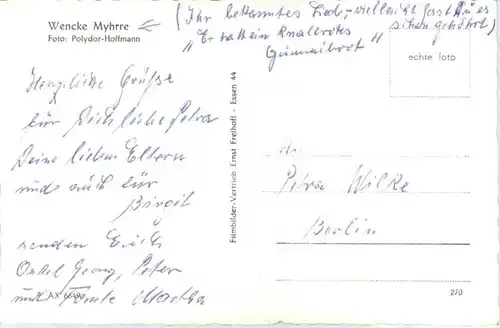 Wencke Myhrre
Foto: Polydor-Hoffmann
(Ihr bekanntes Lied, vielleicht hast Du es
schon gehört)
"Er hat ein knallrotes
Gummiboot"
echte foto
Herzliche Grüße
für Dich liebe Petra
Deine lieben Eltern
und auch für
Birgit
senden Euch
Onkel Georg, Peter
und Tante Martha
Filmbilder-Vertrieb Ernst Freihoff - Essen 44
An
Petra Wilke
Berlin
270